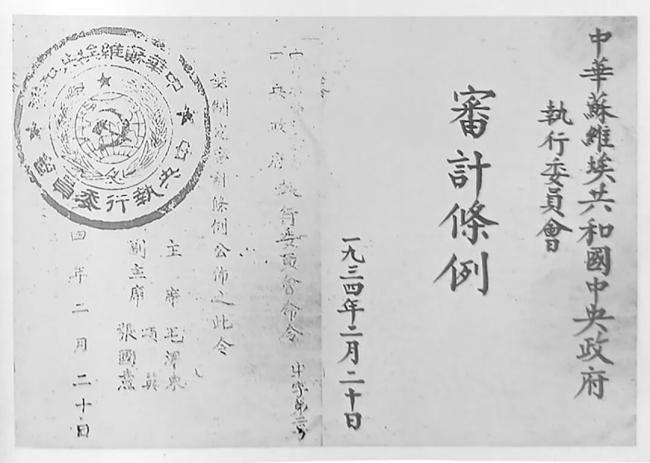 中華蘇維埃共和國中央政府
執行委員會
審計條例
一九三四年二月二十日
央政府執行委員會命令 中字第二号
茲制定審計條例公佈之此令
主席 毛澤東
副主席 項英
張國燾
四年二月二十日
中華蘇維埃共和國
中央執行委員會